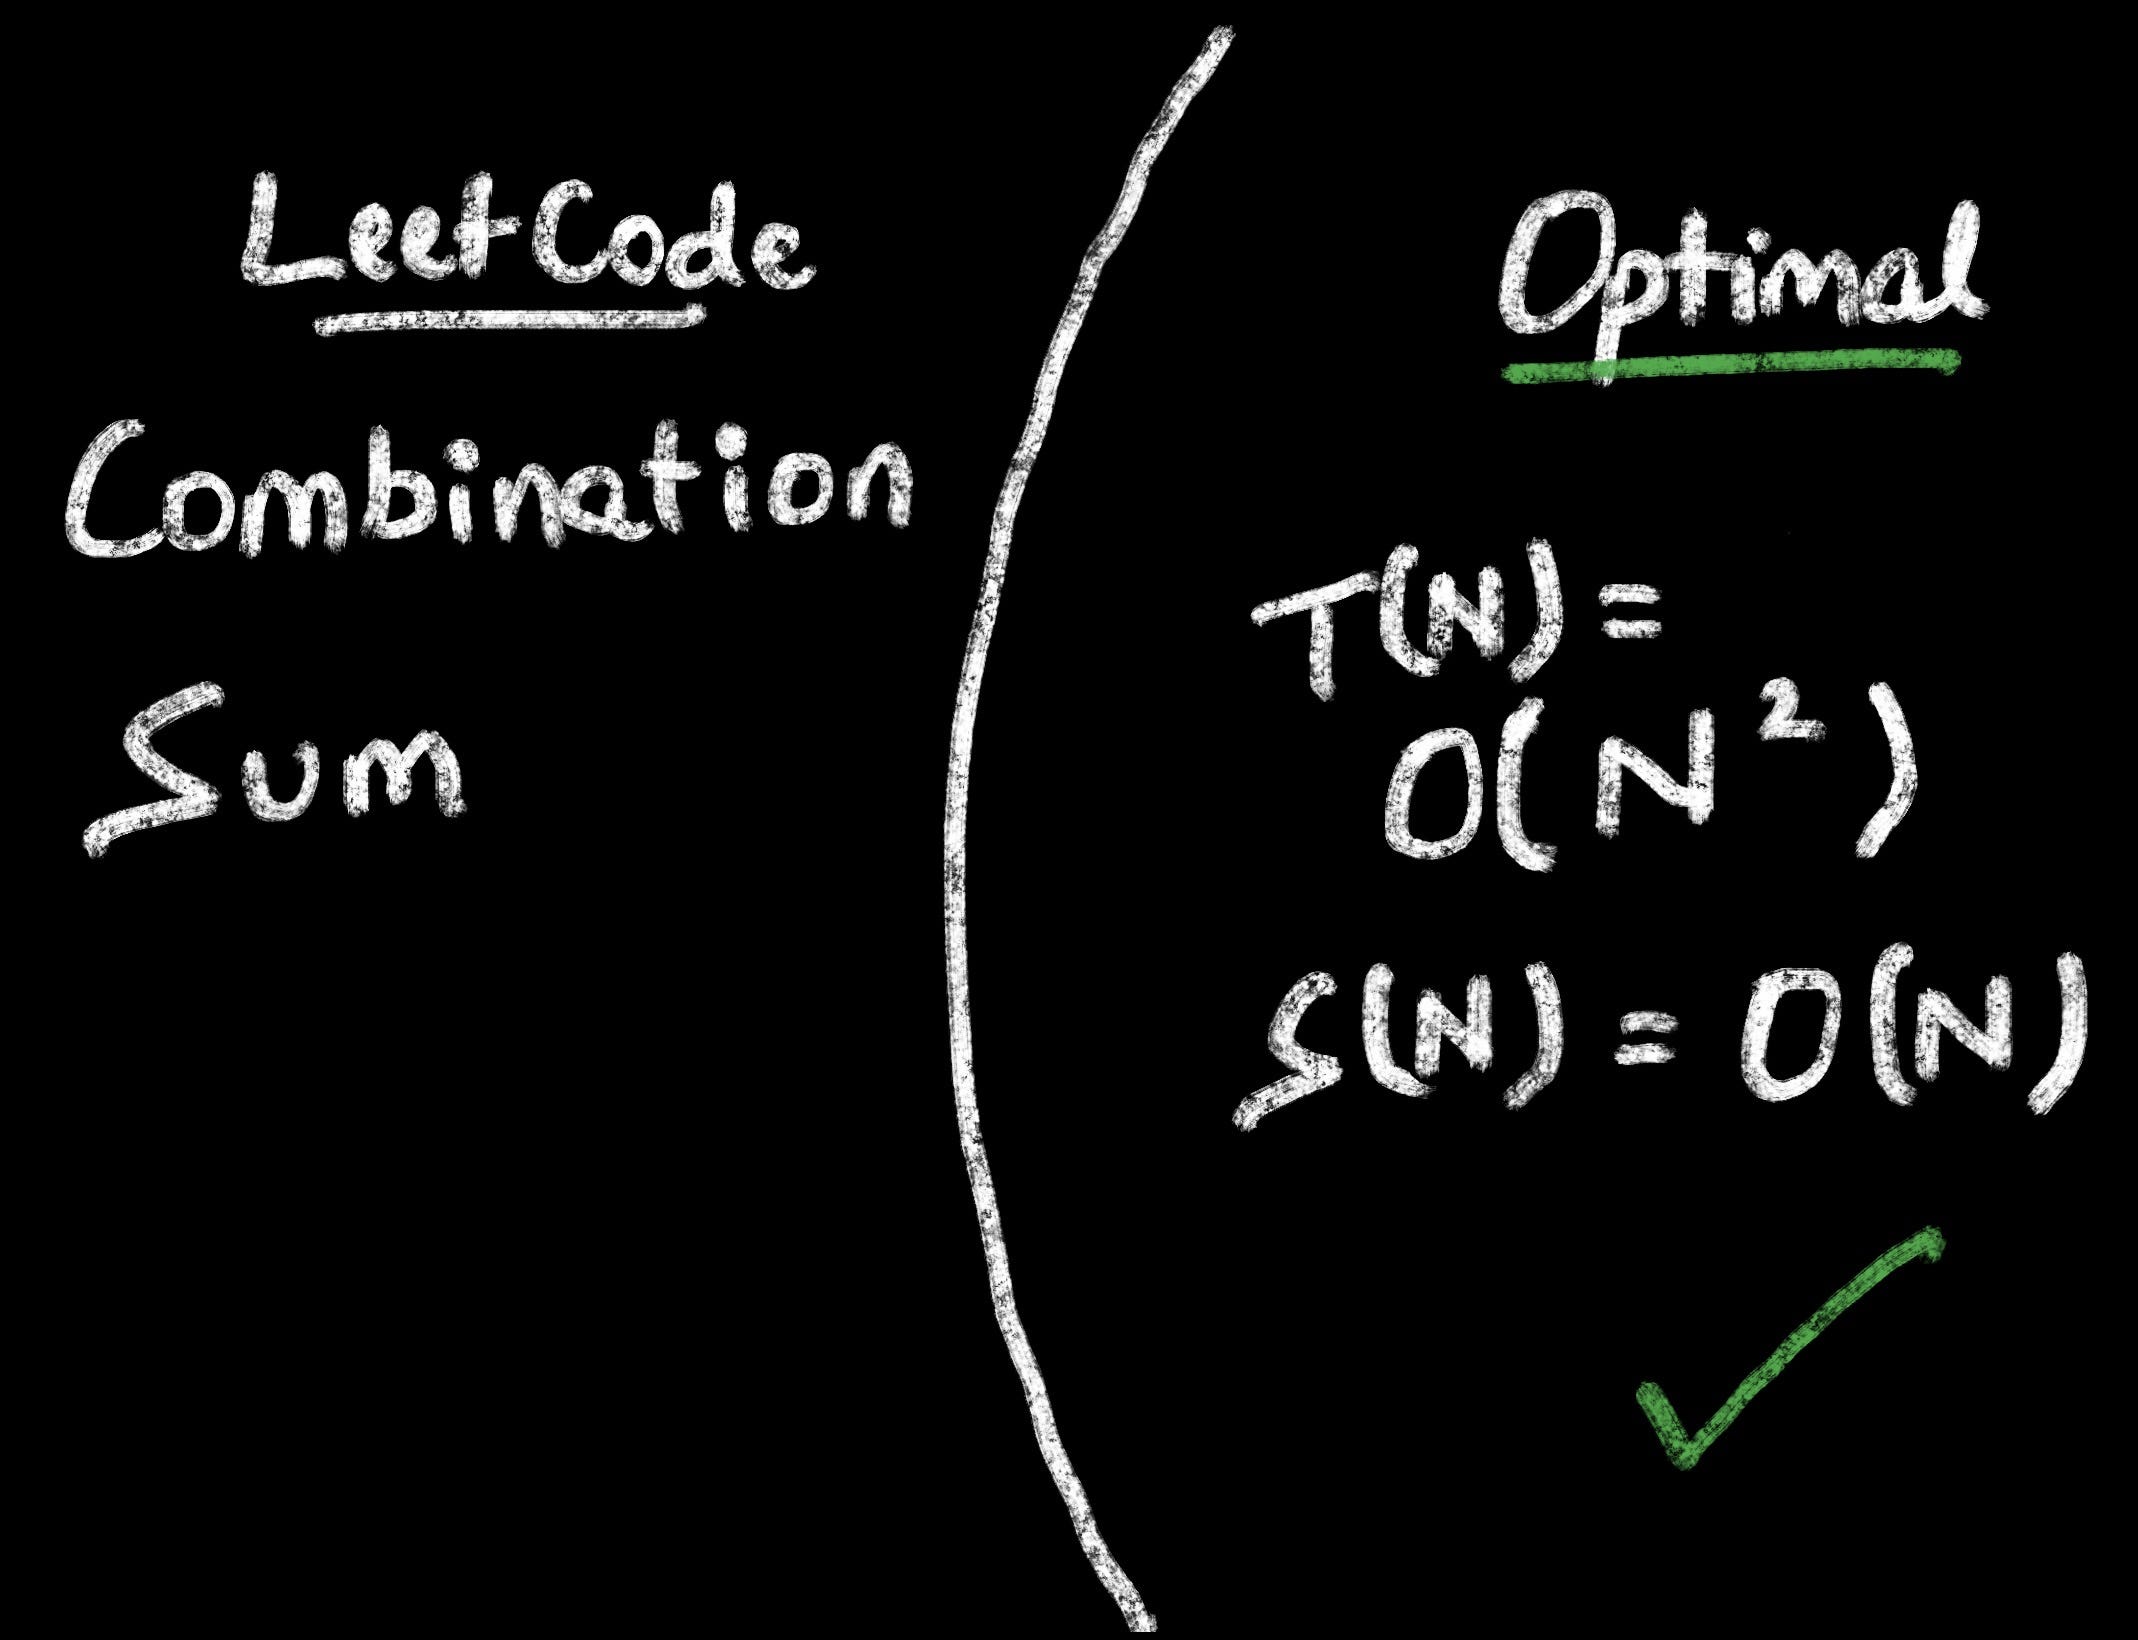 LeetCode
Combination
Sum
Optimal
T(N) =
O(N²)
S(N) = O(N)